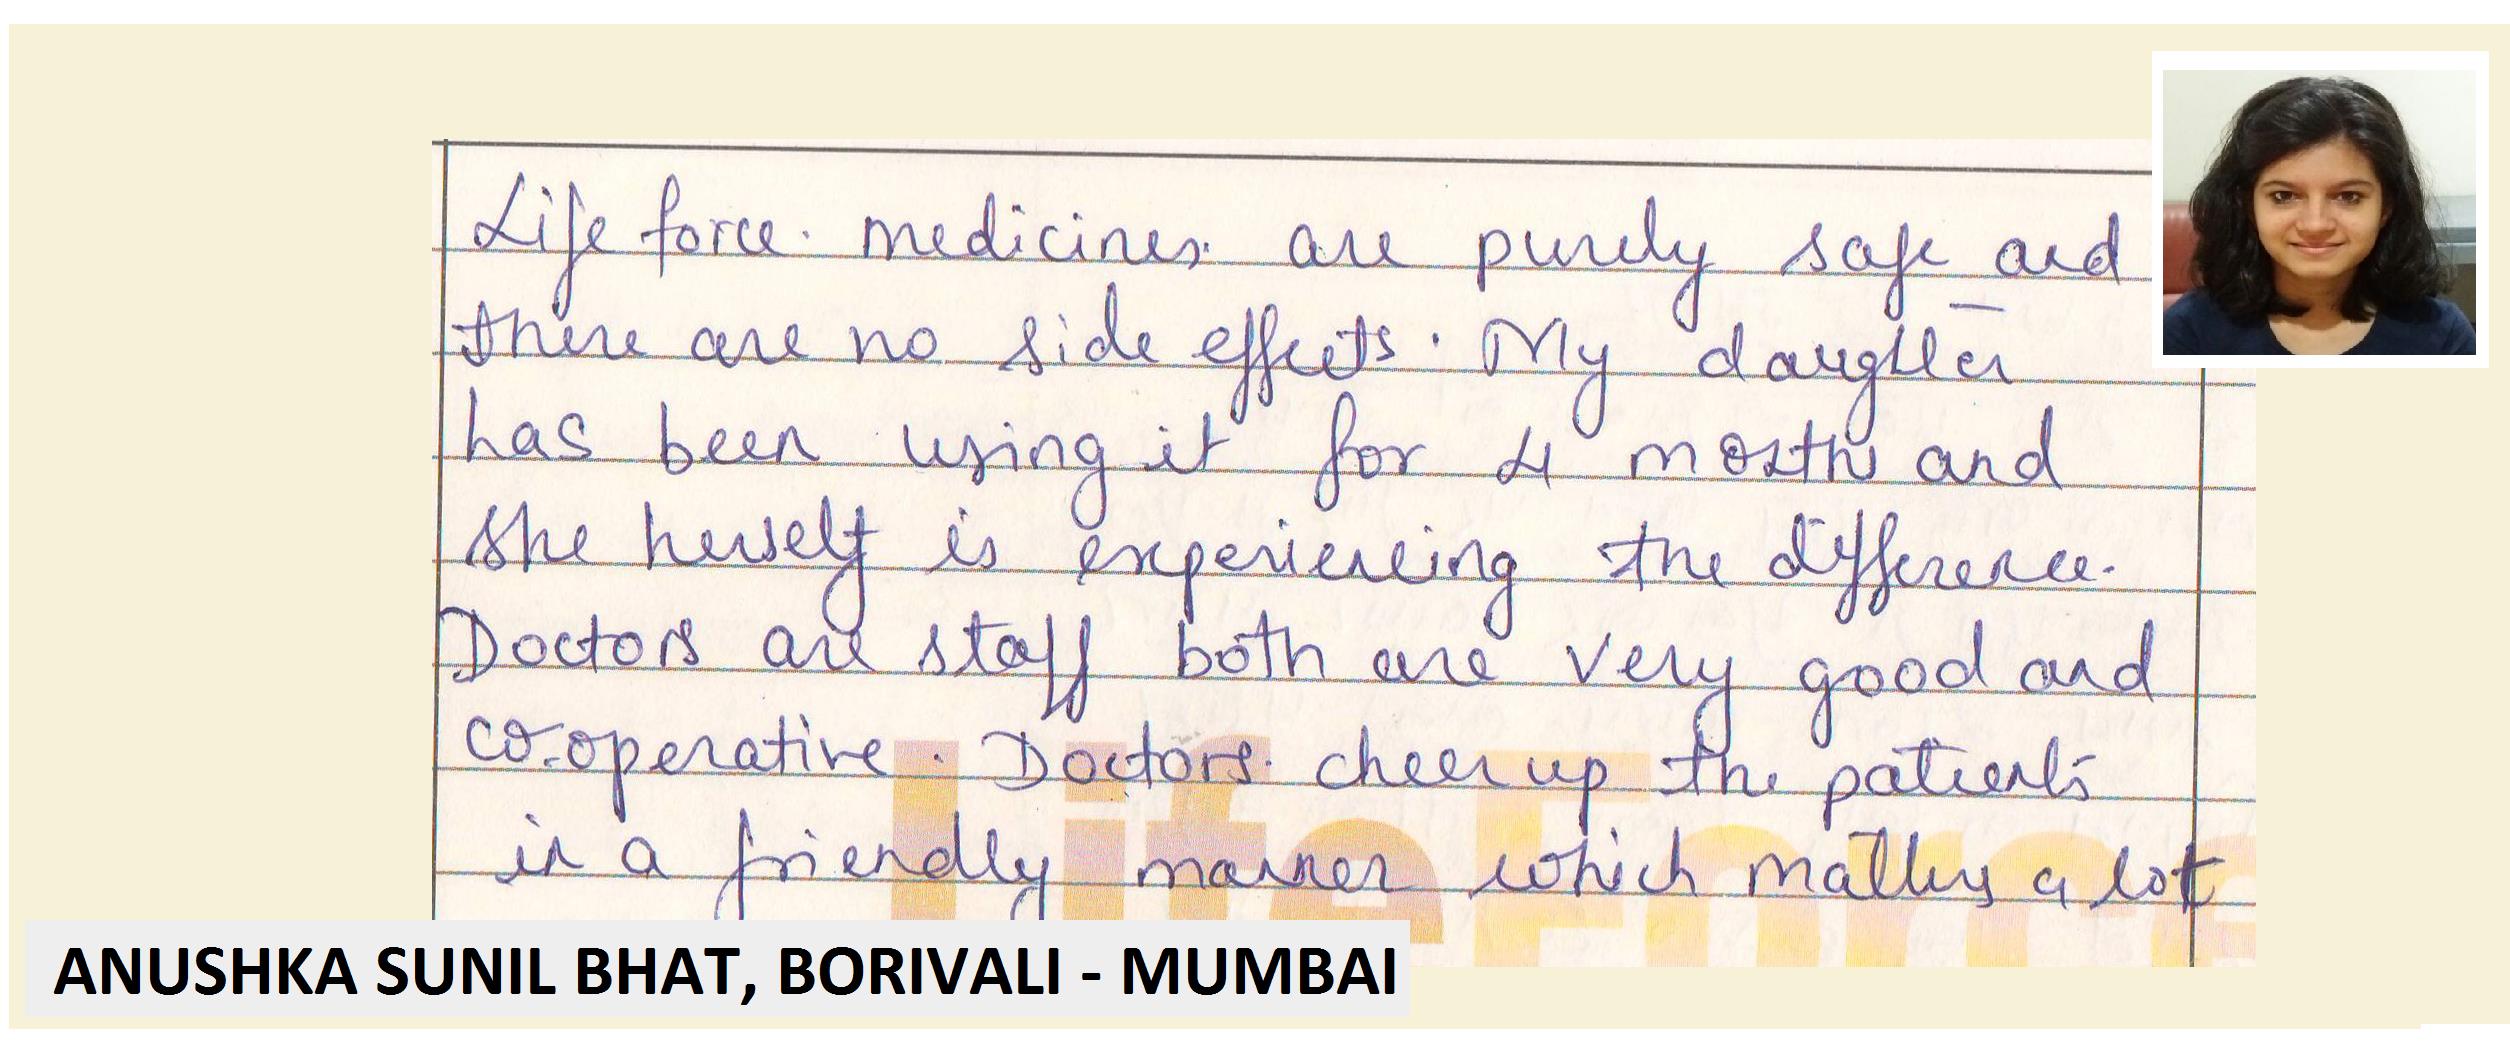 Life force. medicines. are purely safe and
there are no side effects. My daughter
has been using it for 4 months and
she herself is experiencing the difference.
Doctors are staff both are very good and
co-operative. Doctors. cheer up the patients
in a friendly manner which matters a lot
Life Force
ANUSHKA SUNIL BHAT, BORIVALI - MUMBAI